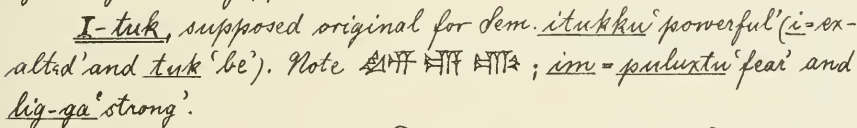 I-tuk, supposed original for Sem. itukku 'powerful' (i = ex-
alted' and tuk 'be'). Note ; im = puluxtu 'fear' and
lig-ga 'strong'.